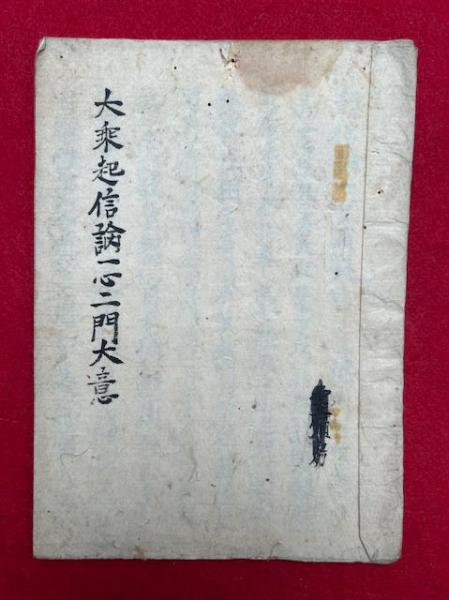 大乘起信論一心二門大意